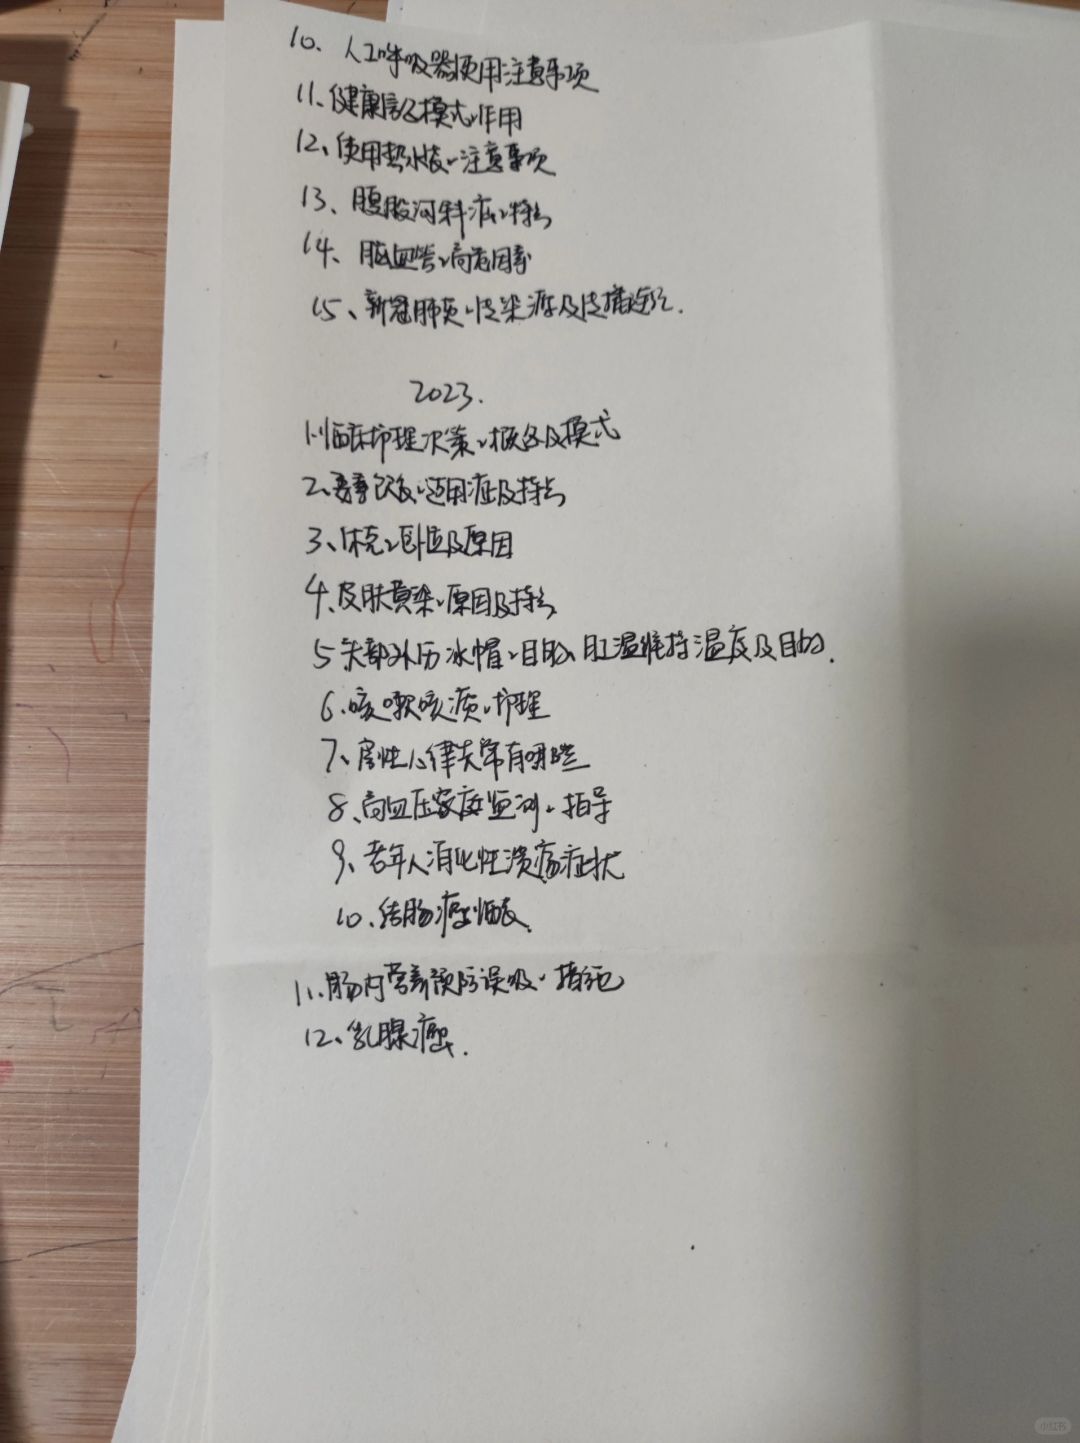 10、人工呼吸器使用注意事项
11、健康信念模式、作用
12、使用热水袋、注意事项
13、腹股沟斜疝、特点
14、脑血管、高危因素
15、新冠肺炎、传染源及传播途径.
2023.
1、临床护理决策、概念及模式
2、要素饮食、适用症及特点
3、休克、卧位及原因
4、皮肤黄染、原因及特点
5 头部外伤冰帽、目的、肛温维持温度及目的.
6、咳嗽咳痰、护理
7、房性心律失常有哪些
8、高血压家庭监测、指导
9、老年人消化性溃疡症状
10、结肠癌临表.
11、肠内营养预防误吸、措施
12、乳腺癌.
小红书